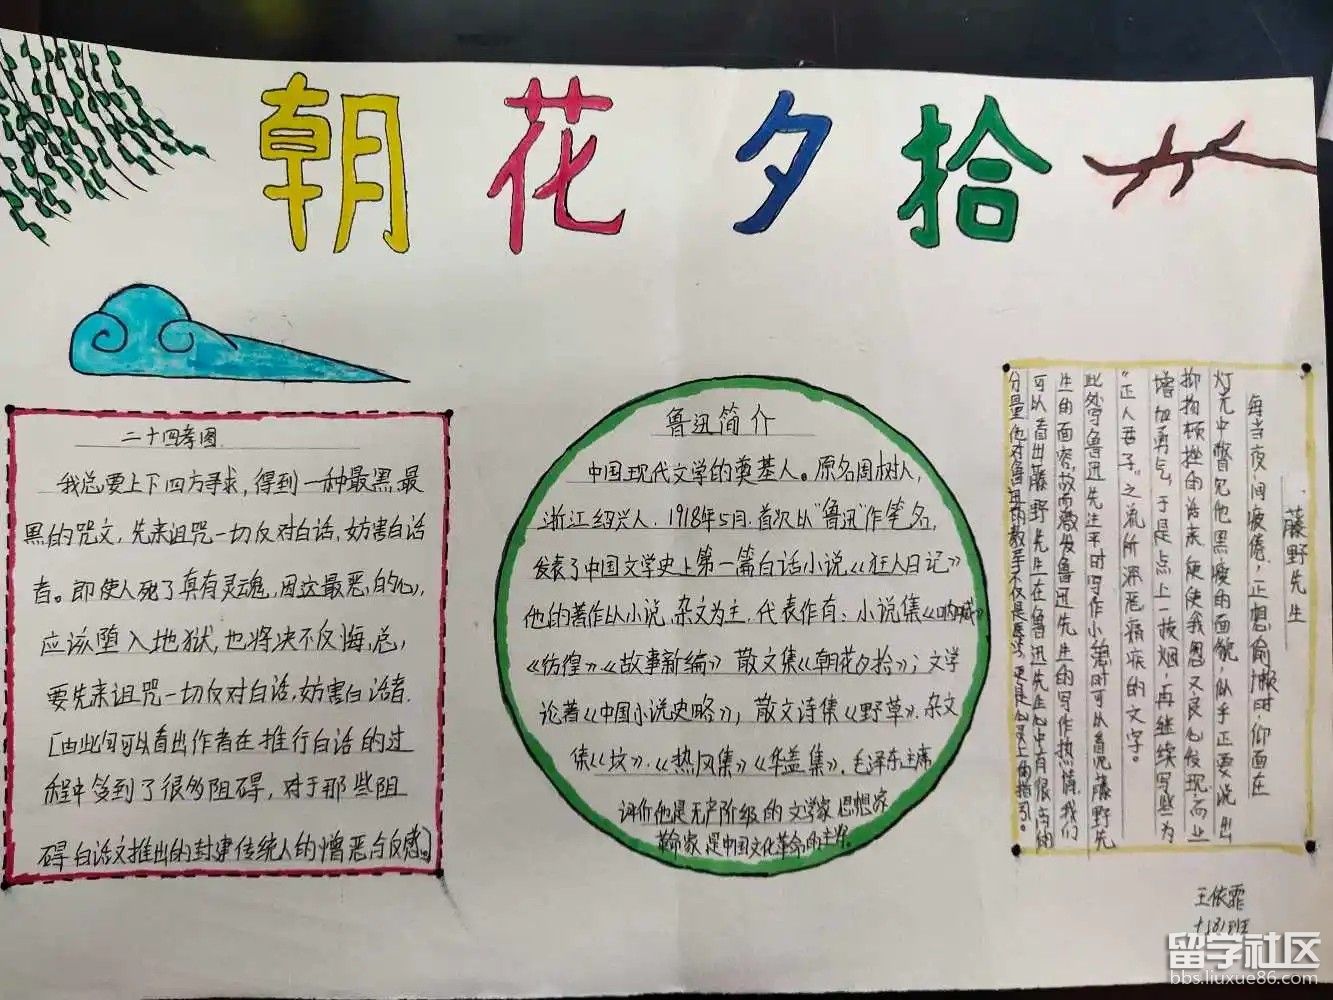 朝花夕拾
二十四孝图
我总要上下四方寻求,得到一种最黑最
黑的咒文,先来诅咒一切反对白话,妨害白话
者。即使人死了真有灵魂,因这最恶的心,
应该堕入地狱,也将决不反悔,总
要先来诅咒一切反对白话,妨害白话者.
[由此句可以看出作者在推行白话的过
程中多到了很多阻碍,对于那些阻
碍白话文推出的封建传统人的憎恶与反感]
鲁迅简介
中国现代文学的奠基人。原名周树人,
浙江绍兴人.1918年5月.首次以"鲁迅"作笔名,
发表了中国文学史上第一篇白话小说《狂人日记》
他的著作以小说,杂文为主.代表作有:小说集《呐喊》
《彷徨》《故事新编》散文集《朝花夕拾》;文学
论著《中国小说史略》;散文诗集《野草》.杂文
集《坟》.《热风集》《华盖集》.毛泽东主席
评价他是无产阶级的文学家思想家
革命家是中国文化革命的主将。
藤野先生
每当夜间疲倦,正想偷懒时,仰面在
灯光中瞥见他黑瘦的面貌似乎正要说出
抑扬顿挫的话来便使我忽又良心发现而且
增加勇气,于是点上一枝烟,再继续写些为
"正人君子"之流所深恶痛疾的文字。
此处写鲁迅先生平时写作小憩时可以看见藤野先
生的面容,故而激发鲁迅先生的写作热情,我们
可以看出藤野先生在鲁迅先生心中有很高的
分量他对鲁迅的教导不仅是医学,更是心灵上的指引。
王依霏
七181班
留学社区
bbs.liuxue86.com